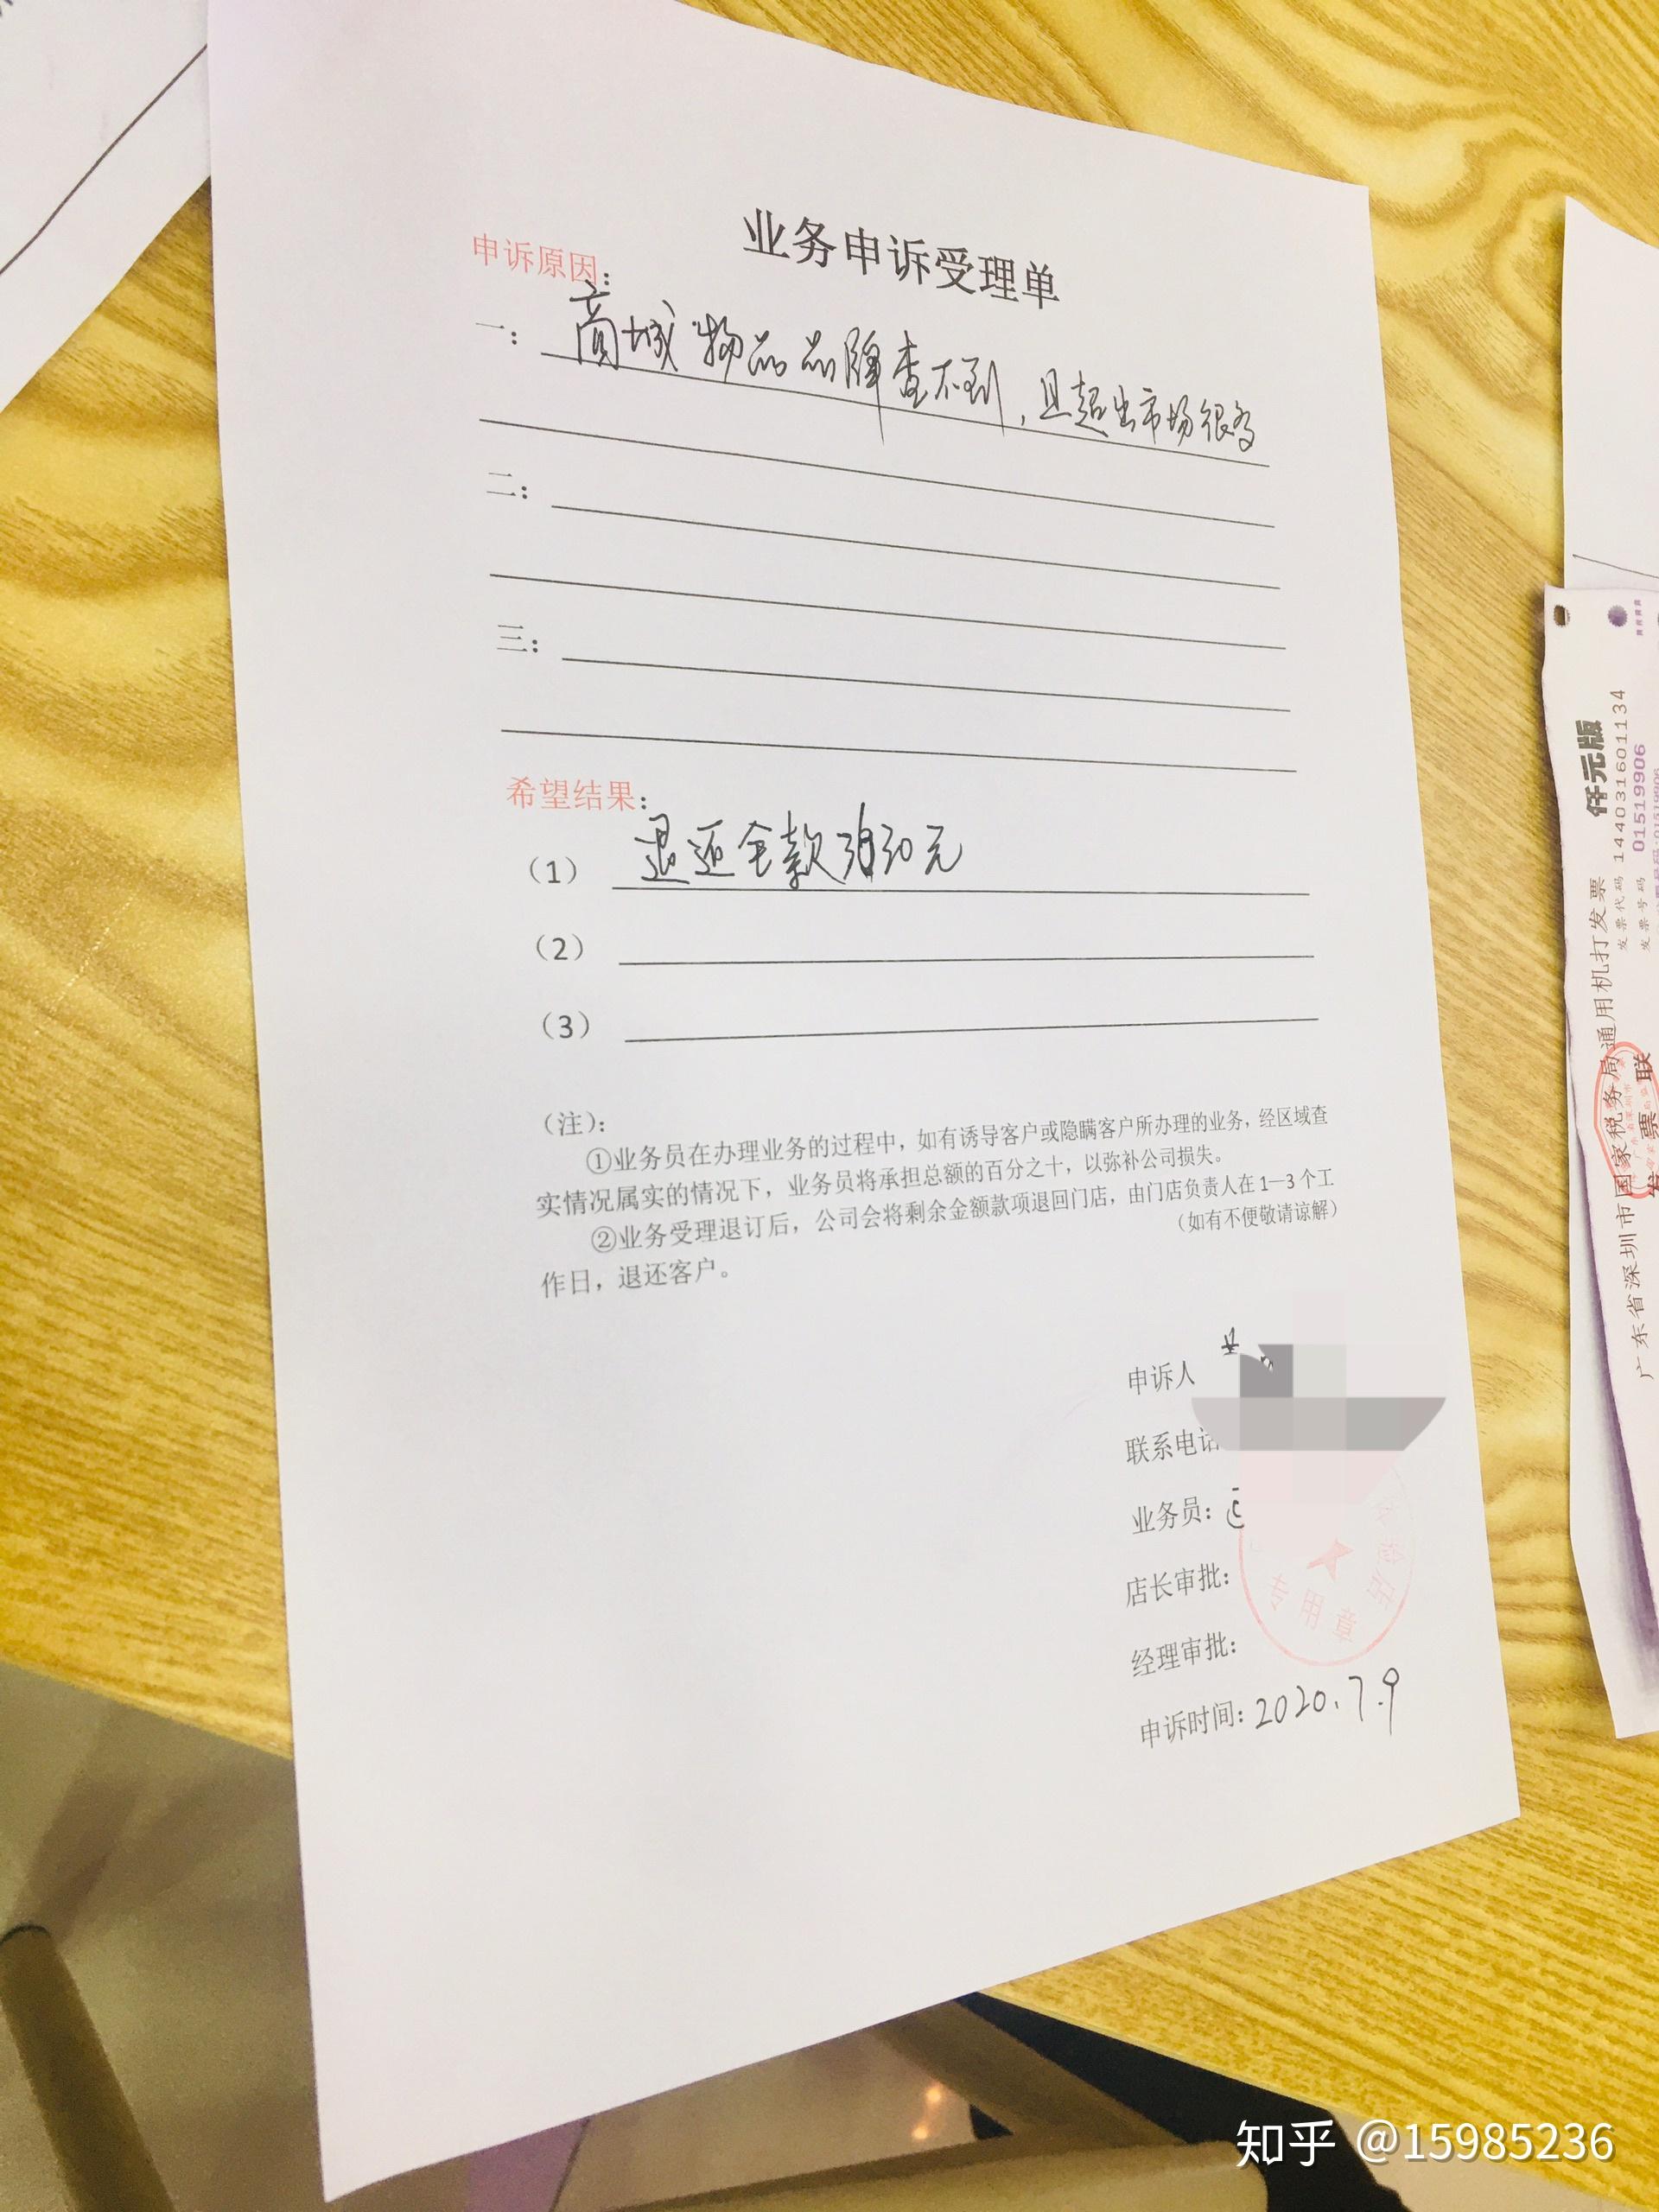 业务申诉受理单
申诉原因：
一：商城物品品牌查不到，且超出市场很多
二：
三：
希望结果：
（1）退还全款元
（2）
（3）
（注）：
①业务员在办理业务的过程中，如有诱导客户或隐瞒客户所办理的业务，经区域查
实情况属实的情况下，业务员将承担总额的百分之十，以弥补公司损失。
②业务受理退订后，公司会将剩余金额款项退回门店，由门店负责人在1—3个工
作日，退还客户。
（如有不便敬请谅解）
申诉人
联系电话
业务员：
店长审批：
经理审批：
申诉时间：2020.7.9
专用章
仟元版
发票代码 144031601134
发票号码 01519906
广东省深圳市国家税务局通用机打发票
发票联
知乎 @15985236